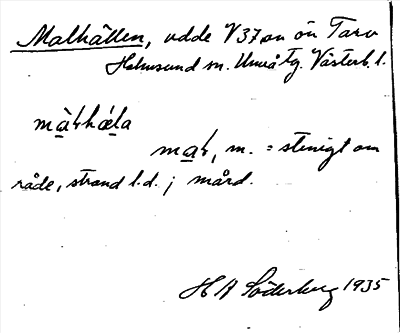 Malhällen, udde V37,on ön Tarv
Holmsund sn. Umeå tg. Västerb. l.
màɫhǽla
maɫ, m. = stenigt om
råde, strand l.d. ; mård.
H A Söderberg 1935